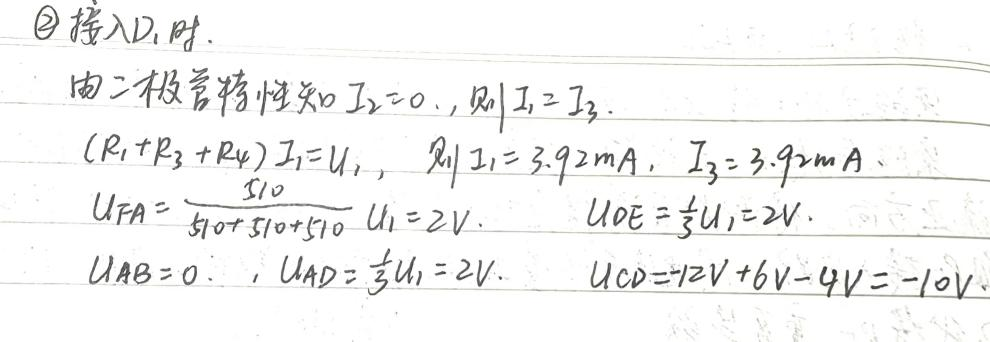 ② 接入D₁时.
由二极管特性知 I₂=0., 则 I₁=I₃.
(R₁+R₃+R₄)I₁=U₁, 则 I₁=3.92mA, I₃=3.92mA.
U_FA = 510/(510+510+510) U₁=2V. U_DE = 1/3 U₁=2V.
U_AB=0. , U_AD = 1/3 U₁=2V. U_CD=-12V+6V-4V=-10V.